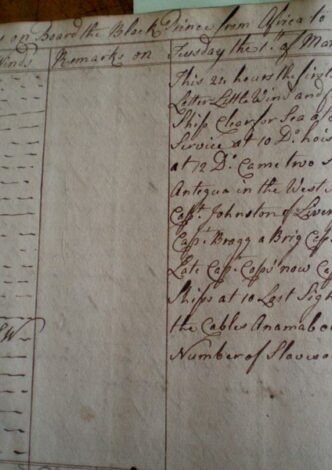 on Board the Black Prince from Africa to
Winds Remarks on Tuesday the 1st of Mar
This 24 hours the first
Letter Little Wind and
Ship Clear for Sea
Service at 10 Do
at 12 Do. Came two
Antigua in the West
Capt. Johnston of Liver
Capt. Bragg a Brig Cap
Late Capt. now Cap
Ships at 10 Last Sight
W
the Cables Anamaboe
Number of Slaves on